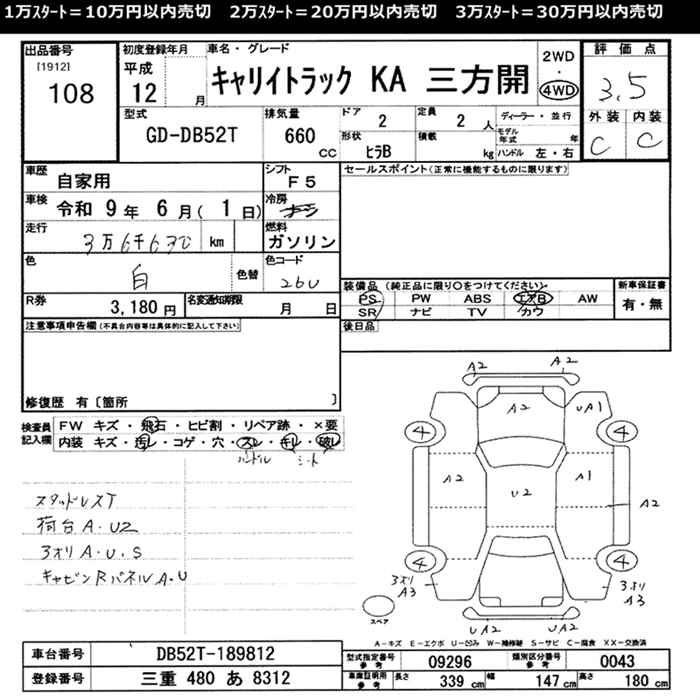 1万スタート＝10万円以内売切　2万スタート＝20万円以内売切　3万スタート＝30万円以内売切
出品番号
[1912]
108
初度登録年月
平成
12 月
車名・グレード
キャリイトラック KA 三方開
2WD
・
4WD
評価点
3.5
外装 内装
C C
型式
GD-DB52T
排気量
660
CC
ドア
2
形状
ヒラB
定員
2 人
積載
kg
ディーラー・並行
モデル年式 年
ハンドル 左・右
車歴
自家用
シフト
F5
車検
令和 9年 6月( 1日)
冷房
走行
3万6千630 km
燃料
ガソリン
色
白
色替
色コード
26U
R券
3,180円
名変通知期限
月 日
セールスポイント(正常に機能するものに限ります)
装備品 (純正品に限り○をつけてください)
PS PW ABS エアB AW
SR ナビ TV カワ
新車保証書
有・無
後日品
注意事項申告欄(不具合内容等は具体的に記入して下さい)
修復歴 有〔箇所 〕
検査員記入欄
FW キズ・飛石・ヒビ割・リペア跡・×要
内装 キズ・汚レ・コゲ・穴・スレ・キレ・破レ
ハンドル シート
スタッドレスT
荷台A・U2
3オリA・U・S
キャビンRパネルA・U
A2 A2
A2 UA1
4 4
A2 A1
U2
A2
4 4
3オリ
A3
3オリ
A3
UA2 UA2
スペア
A－キズ E－エクボ U－凹ミ W－補修跡 S－サビ C－腐食 XX－交換済
車台番号 DB52T-189812
登録番号 三重 480 あ 8312
型式指定番号 参考 09296 類別区分番号 参考 0043
車庫証明用 参考 長さ 339 cm 幅 147 cm 高さ 180 cm